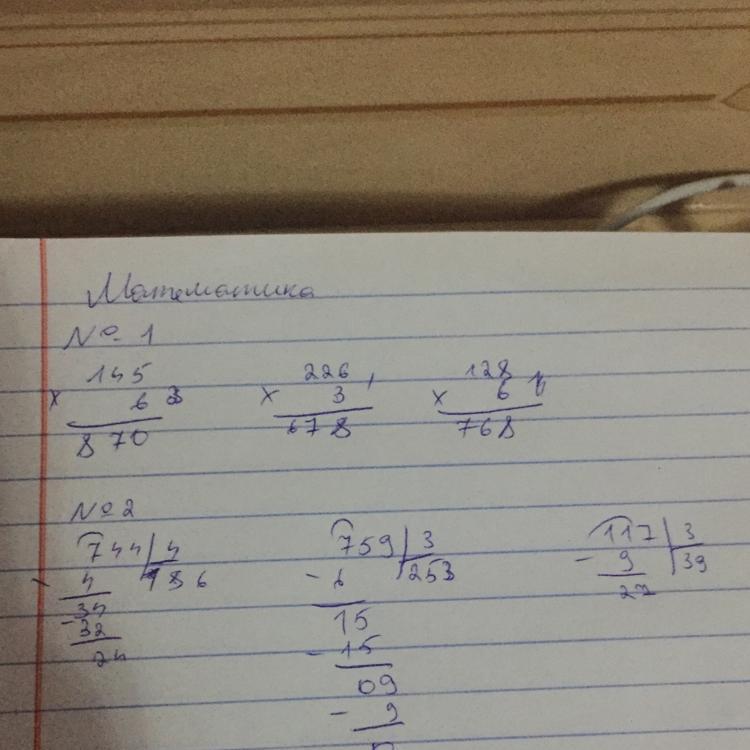 Математика
№ 1
145 226 128
× 6 3 × 3 × 6
870 678 768
№ 2
744 4 759 3 117 3
- 4 186 - 6 253 - 9 39
34 15 27
- 32 - 15
24 09
- 9
0